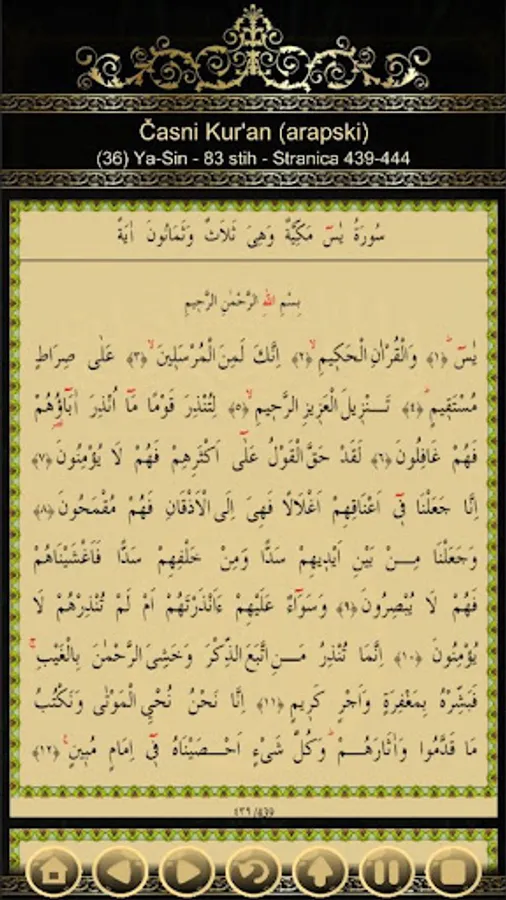 Časni Kur'an (arapski)
(36) Ya-Sin - 83 stih - Stranica 439-444
سُورَةُ يٰسٓ مَكِّيَّةٌ وَهِىَ ثَلَاثٌ وَثَمَانُونَ اٰيَةً
بِسْمِ اللهِ الرَّحْمٰنِ الرَّحِيمِ
يٰسٓ ﴿١﴾ وَالْقُرْاٰنِ الْحَكِيمِ ﴿٢﴾ اِنَّكَ لَمِنَ الْمُرْسَلِينَ ﴿٣﴾ عَلٰى صِرَاطٍ
مُسْتَقِيمٍ ﴿٤﴾ تَنْزِيلَ الْعَزِيزِ الرَّحِيمِ ﴿٥﴾ لِتُنْذِرَ قَوْمًا مَٓا اُنْذِرَ اٰبَٓاؤُ۬هُمْ
فَهُمْ غَافِلُونَ ﴿٦﴾ لَقَدْ حَقَّ الْقَوْلُ عَلٰٓى اَكْثَرِهِمْ فَهُمْ لَا يُؤْمِنُونَ ﴿٧﴾
اِنَّا جَعَلْنَا فِٓى اَعْنَاقِهِمْ اَغْلَالًا فَهِىَ اِلَى الْاَذْقَانِ فَهُمْ مُقْمَحُونَ ﴿٨﴾
وَجَعَلْنَا مِنْ بَيْنِ اَيْدِيهِمْ سَدًّا وَمِنْ خَلْفِهِمْ سَدًّا فَاَغْشَيْنَاهُمْ
فَهُمْ لَا يُبْصِرُونَ ﴿٩﴾ وَسَوَٓاءٌ عَلَيْهِمْ ءَاَنْذَرْتَهُمْ اَمْ لَمْ تُنْذِرْهُمْ لَا
يُؤْمِنُونَ ﴿١٠﴾ اِنَّمَا تُنْذِرُ مَنِ اتَّبَعَ الذِّكْرَ وَخَشِىَ الرَّحْمٰنَ بِالْغَيْبِ
فَبَشِّرْهُ بِمَغْفِرَةٍ وَاَجْرٍ كَرِيمٍ ﴿١١﴾ اِنَّا نَحْنُ نُحْيِ الْمَوْتٰى وَنَكْتُبُ
مَا قَدَّمُوا وَاٰثَارَهُمْ وَكُلَّ شَىْءٍ اَحْصَيْنَاهُ فِٓى اِمَامٍ مُبِينٍ ﴿١٢﴾
٤٣٩ /439